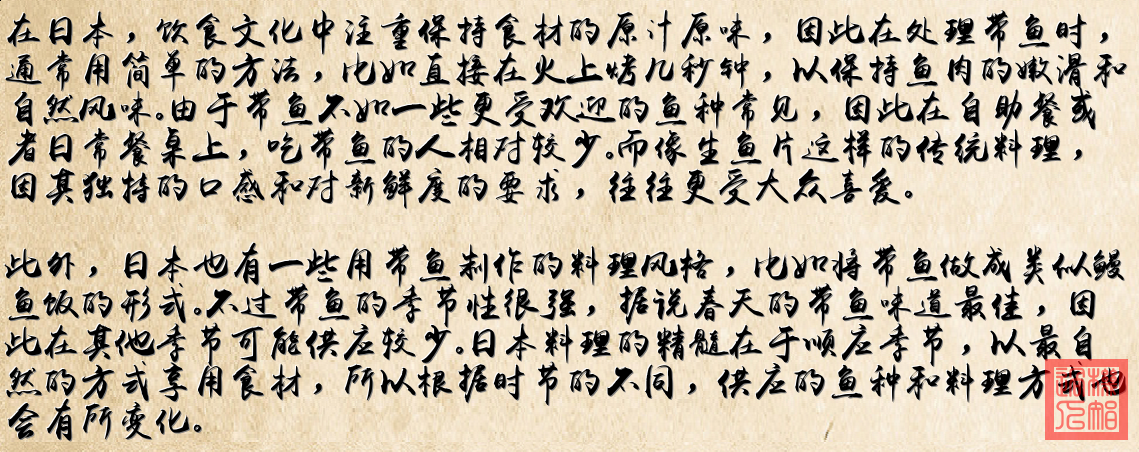 在日本，饮食文化中注重保持食材的原汁原味，因此在处理带鱼时，
通常用简单的方法，比如直接在火上烤几秒钟，以保持鱼肉的嫩滑和
自然风味。由于带鱼不如一些更受欢迎的鱼种常见，因此在自助餐或
者日常餐桌上，吃带鱼的人相对较少。而像生鱼片这样的传统料理，
因其独特的口感和对新鲜度的要求，往往更受大众喜爱。
此外，日本也有一些用带鱼制作的料理风格，比如将带鱼做成类似鳗
鱼饭的形式。不过带鱼的季节性很强，据说春天的带鱼味道最佳，因
此在其他季节可能供应较少。日本料理的精髓在于顺应季节，以最自
然的方式享用食材，所以根据时节的不同，供应的鱼种和料理方式也
会有所变化。